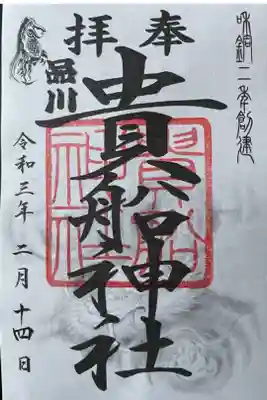 和銅二年創建
奉拝
品川
貴船神社
貴船
神社
令和三年 二月 十四日